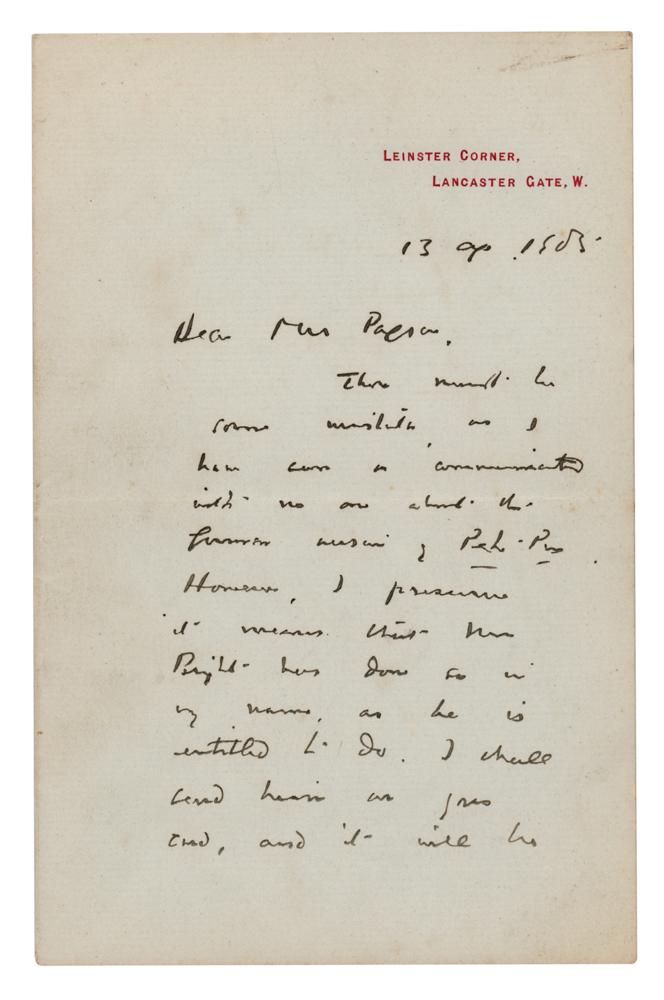 LEINSTER CORNER,
LANCASTER GATE, W.
13 ap. 1905
Dear Mrs
There must be
some mistake, as I
have communicated
with no one about the
German version of Peter Pan.
However, I presume
it means that
has done so in
my name, as he is
entitled to do. I shall
send him on your
and it will be